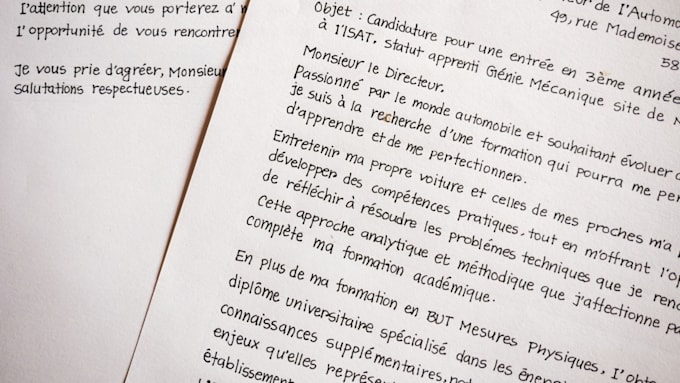 l'attention que vous porterez à
l'opportunité de vous rencontrer
Je vous prie d'agréer, Monsieur
salutations respectueuses.
de l'Automo
49, rue Mademoise
58
Objet : Candidature pour une entrée en 3ème année
à l'ISAT, statut apprenti Génie Mécanique site de N
Monsieur le Directeur.
Passionné par le monde automobile et souhaitant évoluer d
je suis à la recherche d'une formation qui pourra me per
d'apprendre et de me perfectionner.
Entretenir ma propre voiture et celles de mes proches m'a
développer des compétences pratiques, tout en m'offrant l'op
de réfléchir à résoudre les problèmes techniques que je renc
Cette approche analytique et méthodique que j'affectionne pa
complète ma formation académique.
En plus de ma formation en BUT Mesures Physiques, l'obt
diplôme universitaire spécialisé dans les éner
connaissances supplémentaires,
enjeux qu'elles représe
établissement